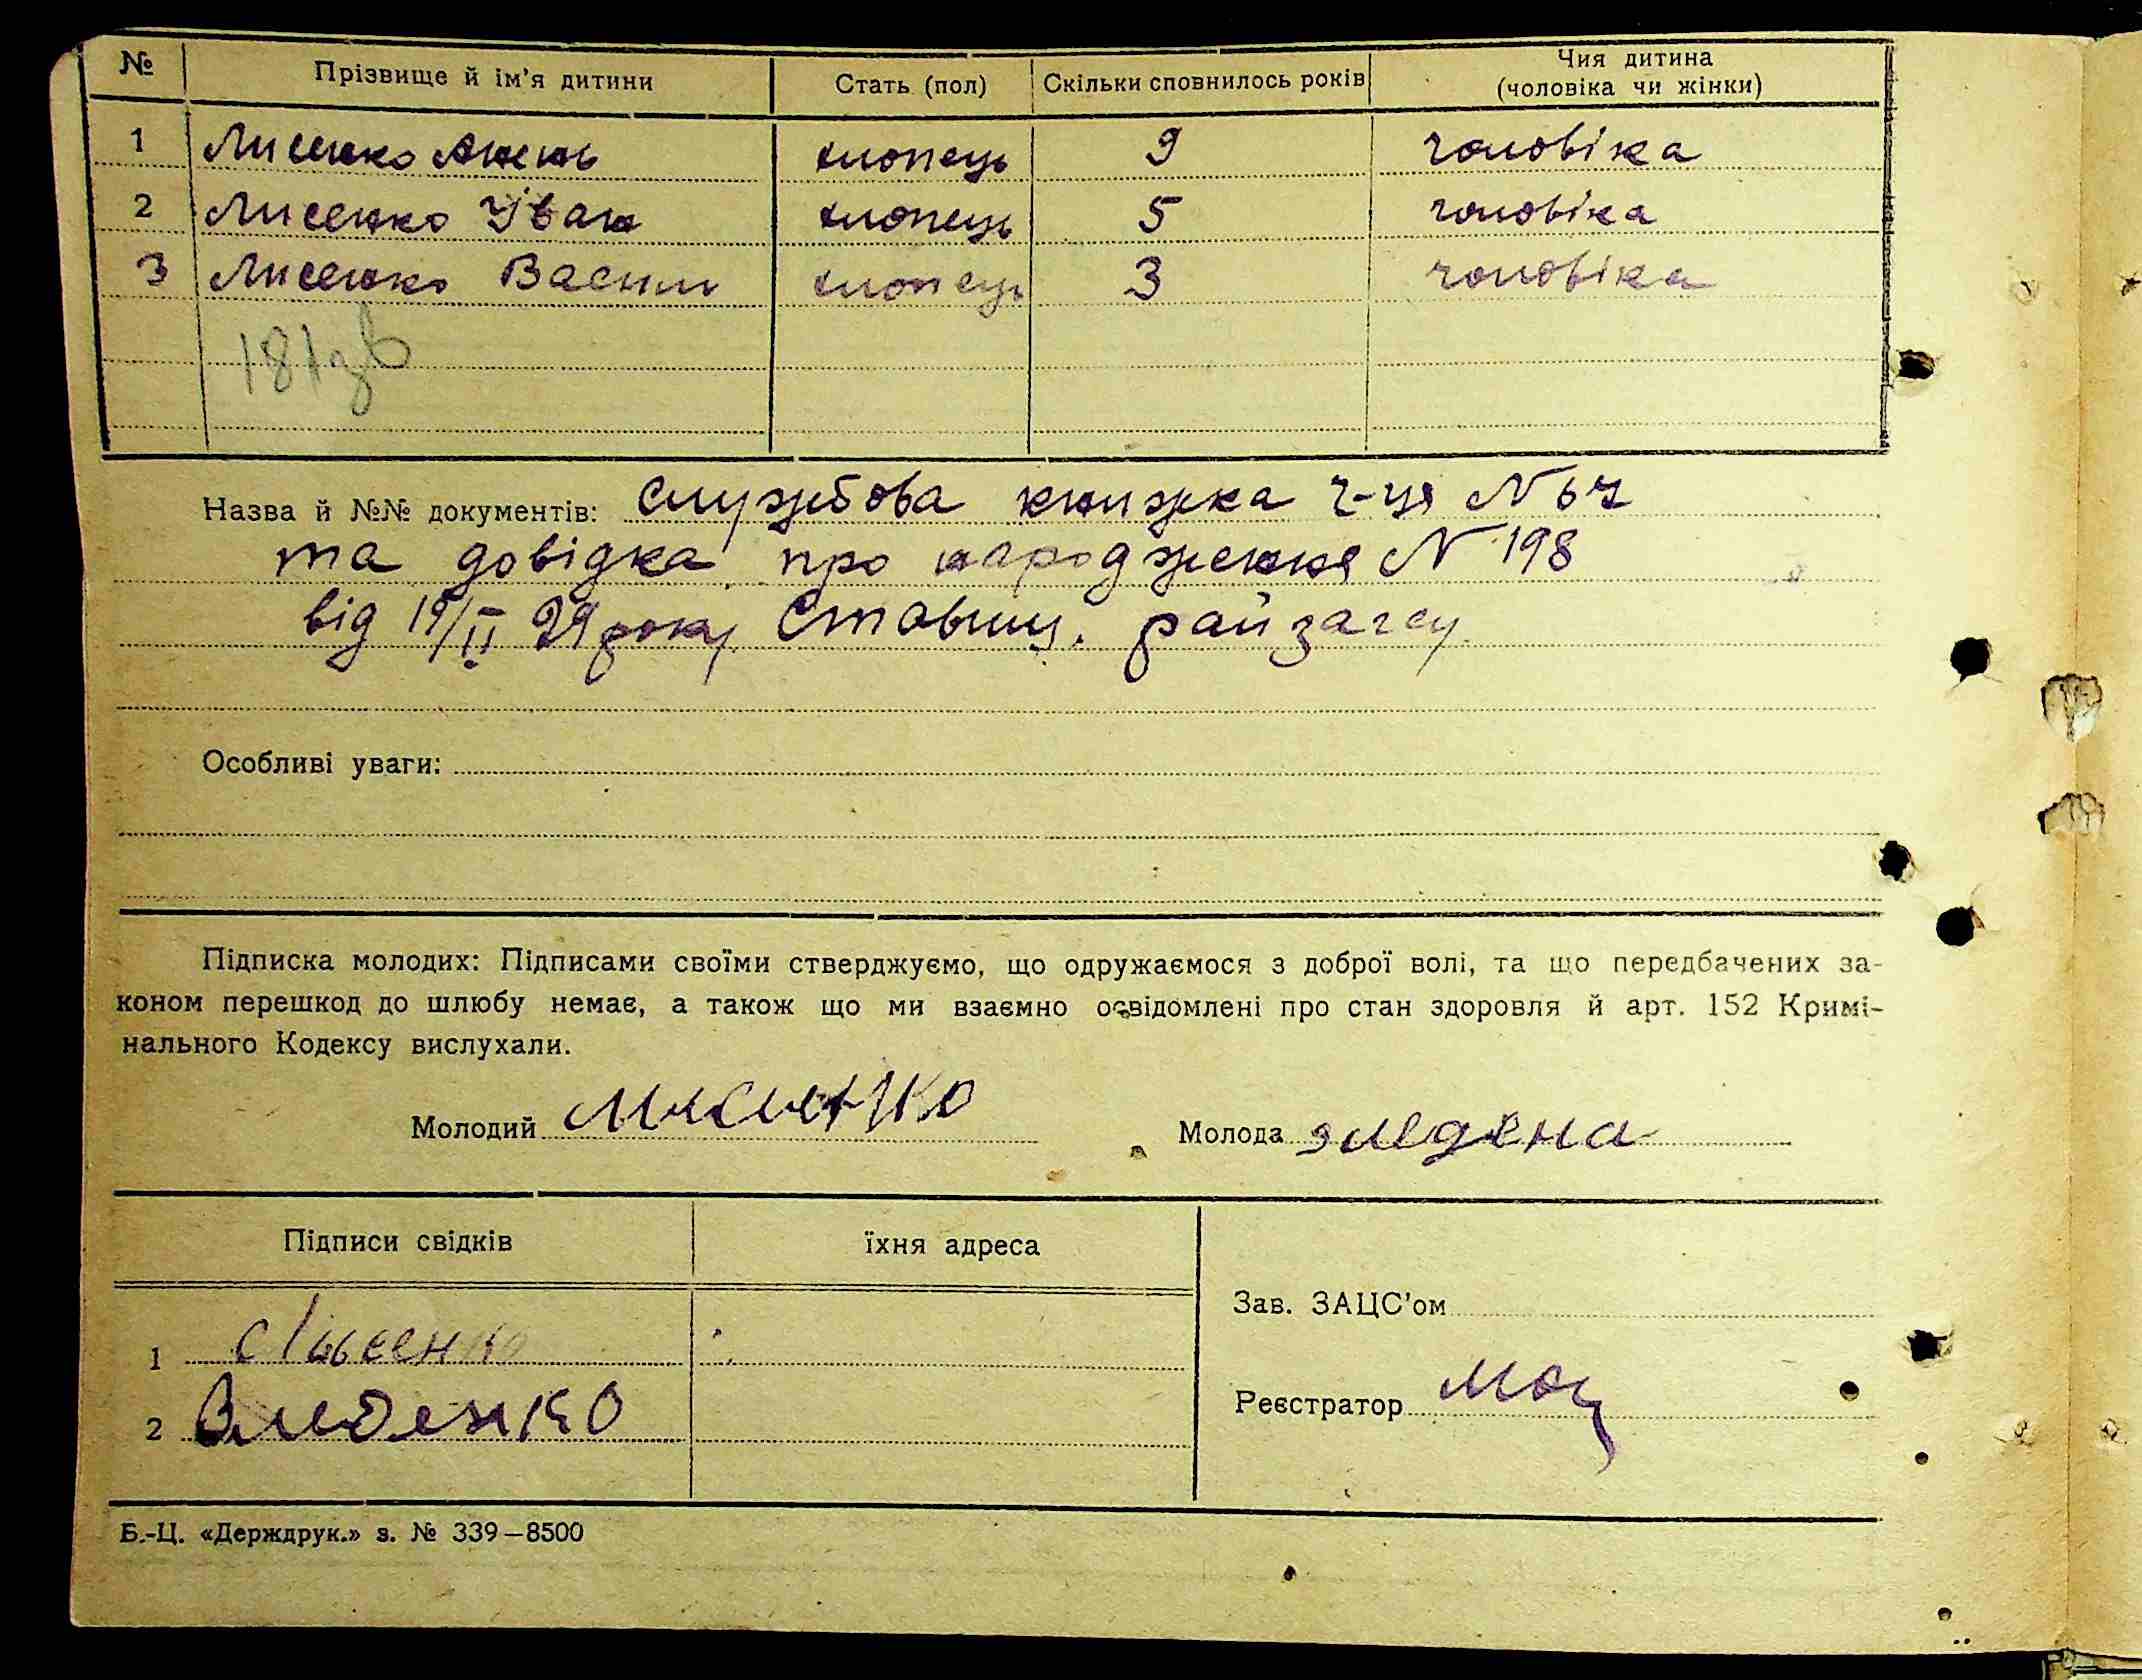 № Прізвище й ім'я дитини Стать (пол) Скільки сповнилось років Чия дитина (чоловіка чи жінки)
1 Лисенко хлопець 9 чоловіка
2 Лисенко Іван хлопець 5 чоловіка
3 Лисенко Васил хлопець 3 чоловіка
Назва й №№ документів: службова книжка г-ця N
та довідка про народження N 198
від 19/II 29 року Ставищ. райзагсу
Особливі уваги:
Підписка молодих: Підписами своїми стверджуємо, що одружаємося з доброї волі, та що передбачених за-
коном перешкод до шлюбу немає, а також що ми взаємно освідомлені про стан здоровля й арт. 152 Кримі-
нального Кодексу вислухали.
Молодий Лисенко Молода
Підписи свідків їхня адреса
Зав. ЗАЦС'ом
1 Лисенко
Реєстратор
2
Б.-Ц. «Держдрук.» з. № 339—8500